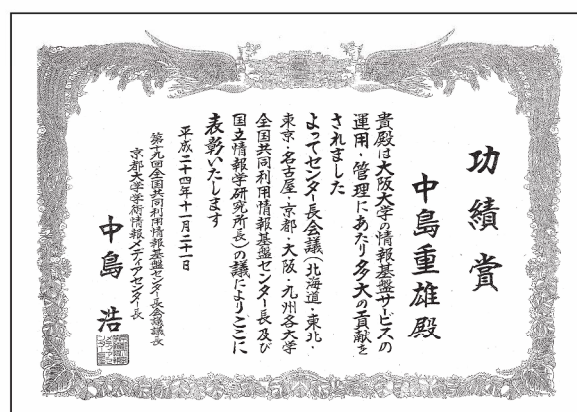 功績賞
中島重雄殿
貴殿は大阪大学の情報基盤サービスの
運用・管理にあたり多大の貢献を
されました
よってセンター長会議（北海道・東北・
東京・名古屋・京都・大阪・九州各大学
全国共同利用情報基盤センター長及び
国立情報学研究所長）の議によりここに
表彰いたします
平成二十四年十一月二十一日
第十九回全国共同利用情報基盤センター長会議議長
京都大学学術情報メディアセンター長
中島浩